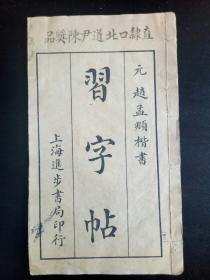 直隸口北道尹陳獎品
元趙孟頫楷書
習字帖
上海進步書局印行